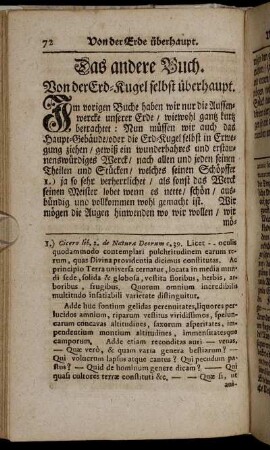 72 Von der Erde überhaupt.
Das andere Buch.
Von der Erd-Kugel selbst überhaupt.
Im vorigen Buche haben wir nur die Aussen-
wercke unserer Erde / wiewohl gantz kurtz
betrachtet: Nun müssen wir auch das
Haupt-Gebäude / oder die Erd-Kugel selbst in Erwe-
gung ziehen / gewiß ein wunderbahres und erstau-
nenswürdiges Werck / nach allen und jeden seinen
Theilen und Stücken / welches seinen Schöpffer
1.) ja so sehr verherrlichet / als sonst das Werck
seinen Meister lobet wenn es nette / schön / aus-
bündig und vollkommen wohl gemacht ist. Wir
mögen die Augen hinwenden wo wir wollen / wir
mö-
1.) Cicero lib. 2. de Naturâ Deorum c. 39. Licet -- oculis
quodammodo contemplari pulchritudinem earum re-
rum, quas Divina providentia dicimus constitutas. Ac
principio Terra universa cernatur, locata in media mun-
di sede, solida & globosa, vestita floribus, herbis, ar-
boribus, frugibus, Quorum omnium incredibilis
multitudo insatiabili varietate distinguitur,
Adde huc fontium gelidas perennitates, liquores per-
lucidos amnium, riparum vestitus viridissimos, spelun-
carum concavas altitudines, saxorum asperitates, im-
pendentium montium altitudines, immensitatesque
camporum, Adde etiam reconditas auri — venas,
— Quæ verò, & quam varia genera bestiarum? —
Qui volucrum lapsus atque cantus? Qui pecudum pa-
stus? — Quid de hominum genere dicam? — Qui
quasi cultores terræ constituti &c, — Quæ si, ut
ani-